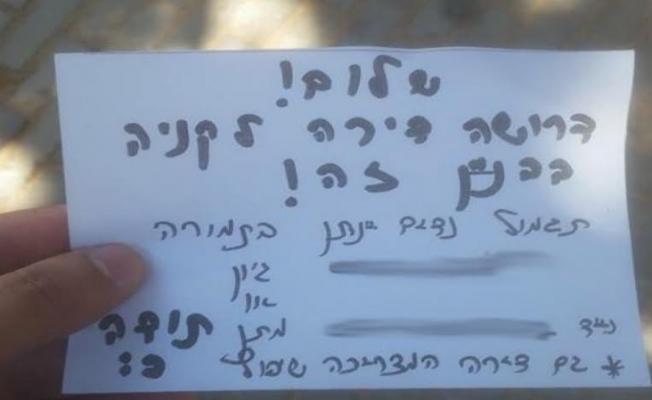 שלום!
דרושה דירה לקניה
בבנין זה!
תגמול נדיב ינתן בתמורה
ג'ון
או
נייד מתן
* גם דירה המצריכה שיפוץ
תודה
:כ